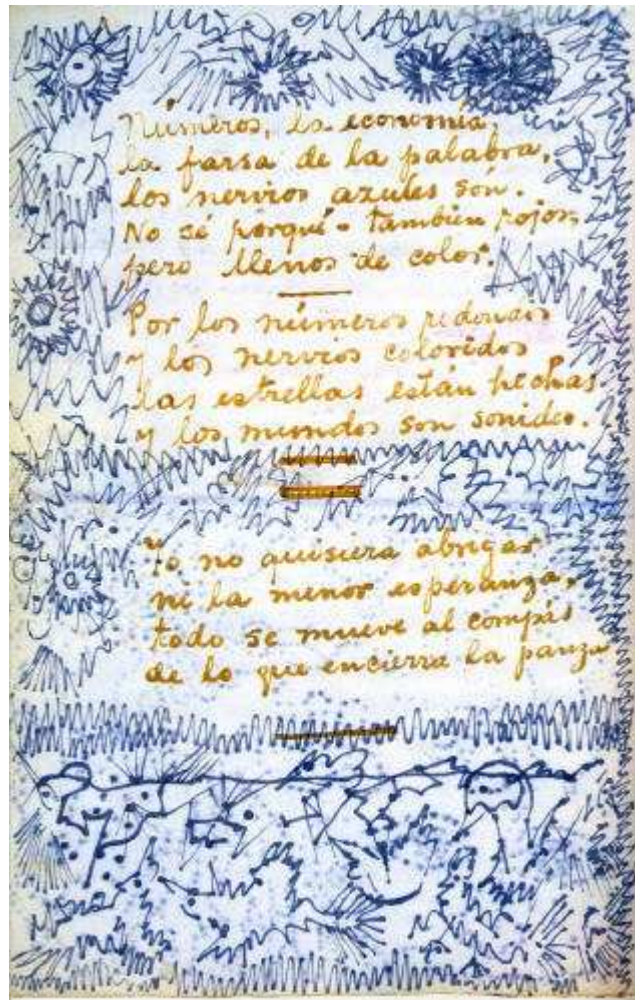 Números, la economía
la farsa de la palabra,
los nervios azules són.
No sé porqué - también rojos,
pero llenos de color.
Por los números redondos
y los nervios coloridos
las estrellas están hechas
y los mundos son sonidos.
Yo no quisiera abrigar
ni la menor esperanza,
todo se mueve al compás
de lo que encierra la panza